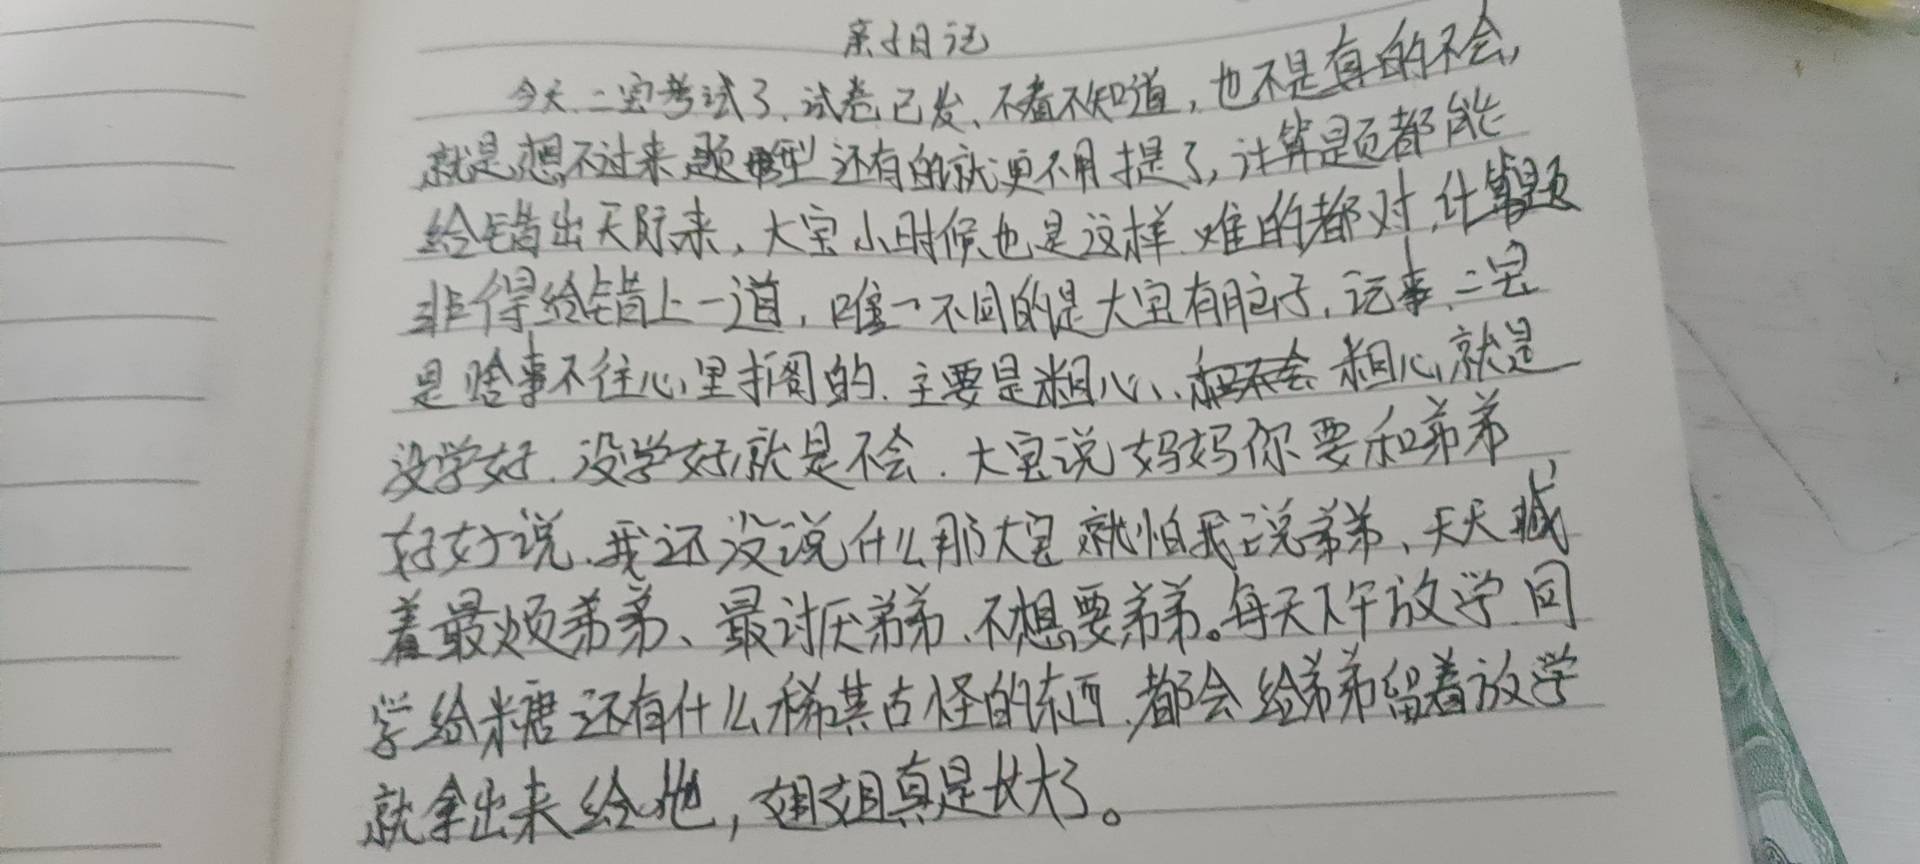 亲子日记
今天、二宝考试了、试卷已发、不看不知道，也不是真的不会，
就是想不过来题型还有的就更不用提了，计算题都能
给错出天际来，大宝小时候也是这样难的都对，计算题
非得给错上一道，唯一不同的是大宝有脑子，记事、二宝
是啥事不往心里搁的、主要是粗心、粗心就是
没学好、没学好就是不会、大宝说妈妈你要和弟弟
好好说、我还没说什么那大宝就怕我说弟弟、天天喊
着最烦弟弟、最讨厌弟弟、不想要弟弟。每天下午放学同
学给糖还有什么稀其古怪的东西、都会给弟弟留着放学
就拿出来给他，姐姐真是长大了。